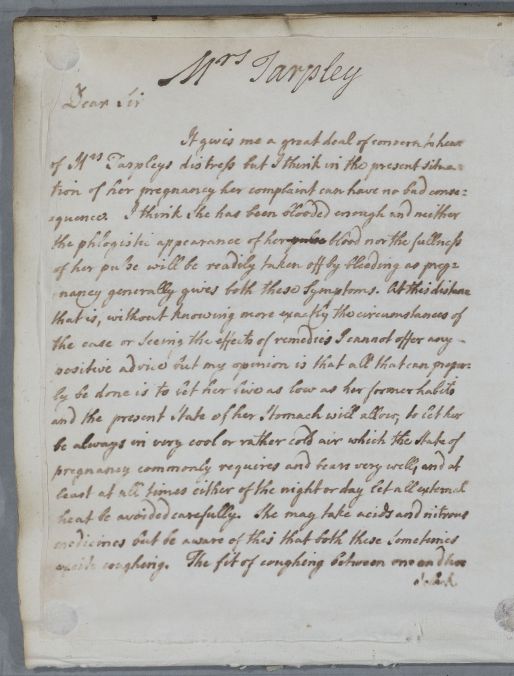 Mrs Tarpley
Dear Sir
It gives me a great deal of concern to hear
of Mrs Tarpleys distress but I think in the present situa-
tion of her pregnancy her complaint can have no bad conse=
equence. I think she has been blooded enough and neither
the phlogistic appearance of her pulse blood nor the fullness
of her pulse will be readily taken off by bleeding as preg=
nancy generally gives both these Symptoms. At this distance
that is, without knowing more exactly the circumstances of
the case or seeing the effects of remedies I cannot offer any
positive advice but my opinion is that all that can proper=
ly be done is to let her live as low as her former habits
and the present state of her Stomach will allow, to let her
be always in very cool or rather cold air which the state of
pregnancy commonly requires and bears very well, and at
least at all times either of the night or day let all external
heat be avoided carefully. She may take acids and nitrous
medicines but be aware of this that both these sometimes
excite coughing. The fit of coughing between one and two
o'clock